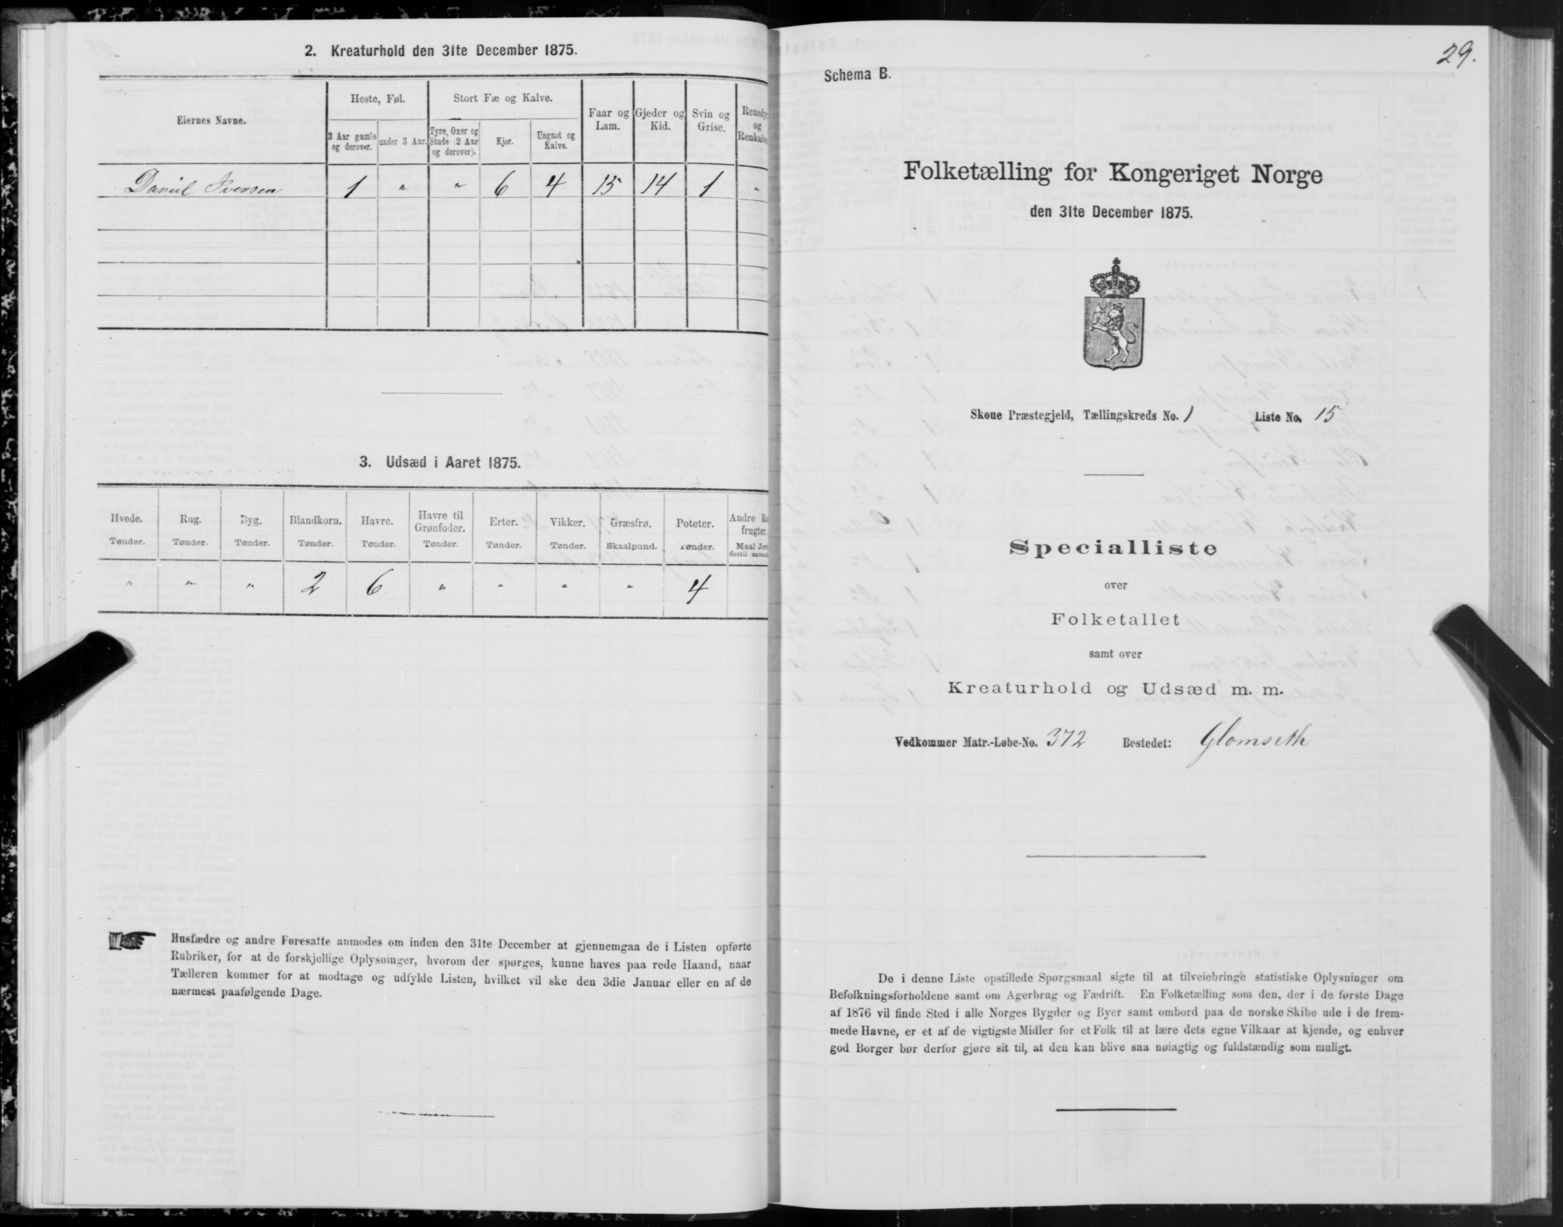 2. Kreaturhold den 31te December 1875.
Eiernes Navne.
Heste, Føl.
Stort Fæ og Kalve.
Faar og Lam.
Gjeder og Kid.
Svin og Grise.
Rensdyr og Renkalve
3 Aar gamle og derover.
under 3 Aar.
Tyre, Oxer og Stude (2 Aar og derover).
Kjør.
Ungnøt og Kalve.
Daniel Iversen 1 " " 6 4 15 14 1 "
3. Udsæd i Aaret 1875.
Hvede. Rug. Byg. Blandkorn. Havre. Havre til Grønfoder. Erter. Vikker. Græsfrø. Poteter. Andre frugter.
Tønder. Tønder. Tønder. Tønder. Tønder. Tønder. Tønder. Tønder. Skaalpund. Tønder. Maal
" " " 2 6 " " " " 4
Husfædre og andre Foresatte anmodes om inden den 31te December at gjennemgaa de i Listen opførte
Rubriker, for at de forskjellige Oplysninger, hvorom der spørges, kunne haves paa rede Haand, naar
Tælleren kommer for at modtage og udfylde Listen, hvilket vil ske den 3die Januar eller en af de
nærmest paafølgende Dage.
29.
Schema B.
Folketælling for Kongeriget Norge
den 31te December 1875.
Skone Præstegjeld, Tællingskreds No. 1 Liste No. 15
Specialliste
over
Folketallet
samt over
Kreaturhold og Udsæd m. m.
Vedkommer Matr.-Løbe-No. 372 Bostedet: Glomseth
De i denne Liste opstillede Spørgsmaal sigte til at tilveiebringe statistiske Oplysninger om
Befolkningsforholdene samt om Agerbrug og Fædrift. En Folketælling som den, der i de første Dage
af 1876 vil finde Sted i alle Norges Bygder og Byer samt ombord paa de norske Skibe ude i de frem-
mede Havne, er et af de vigtigste Midler for et Folk til at lære dets egne Vilkaar at kjende, og enhver
god Borger bør derfor gjøre sit til, at den kan blive saa nøiagtig og fuldstændig som muligt.